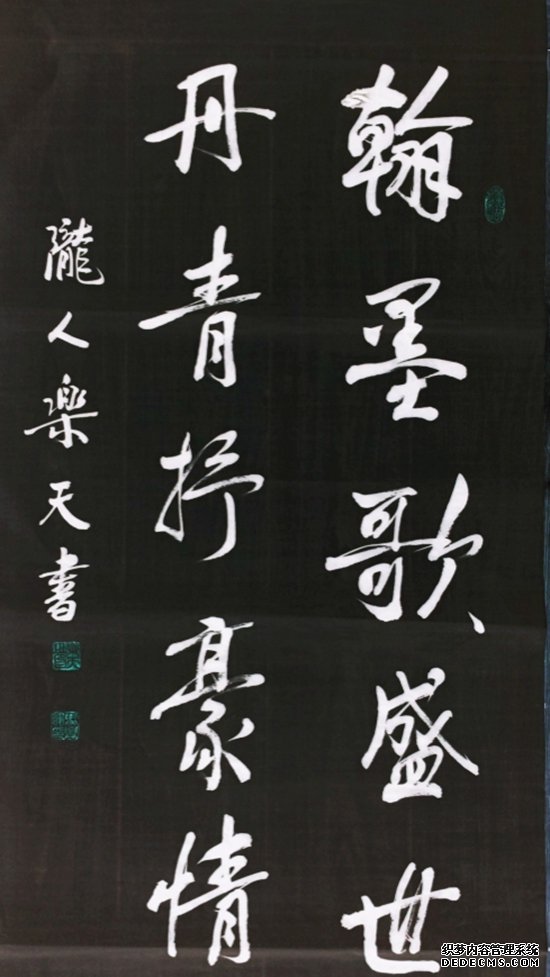 翰墨歌盛世
丹青抒豪情
隴人樂天書
织梦内容管理系统
DEDECMS.COM